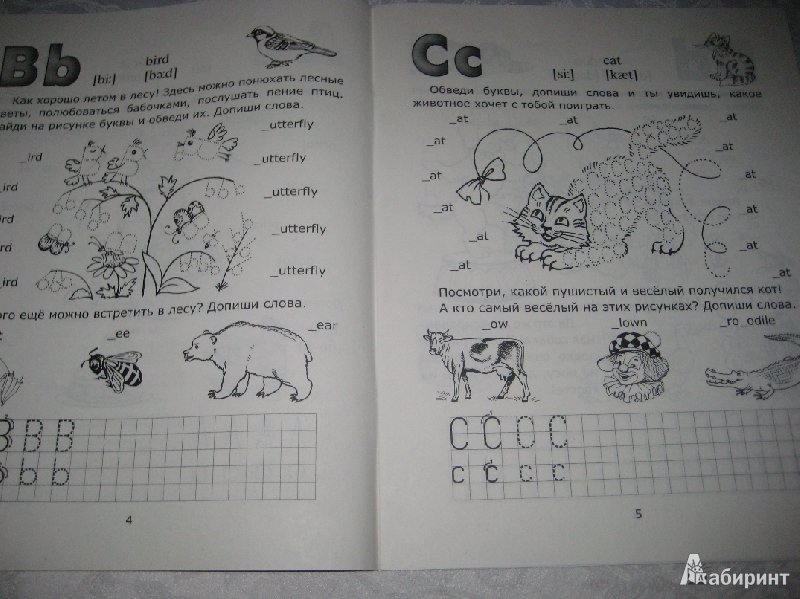 Bb
bird
[bi:] [bɜ:d]
Как хорошо летом в лесу! Здесь можно понюхать лесные
веты, полюбоваться бабочками, послушать пение птиц.
айди на рисунке буквы и обведи их. Допиши слова.
_utterfly
_ird
_utterfly
_ird
_utterfly
_ird
_utterfly
_ird
_utterfly
_ird
_utterfly
ого ещё можно встретить в лесу? Допиши слова.
_ee
_ear
B B B
b b b
4
Cc
cat
[si:] [kæt]
Обведи буквы, допиши слова и ты увидишь, какое
животное хочет с тобой поиграть.
_at _at _at
_at _at
_at _at
_at _at
_at _at
_at _at
Посмотри, какой пушистый и весёлый получился кот!
А кто самый весёлый на этих рисунках? Допиши слова.
_ow _lown _ro_odile
C C C C
c c c c
5
Лабиринт